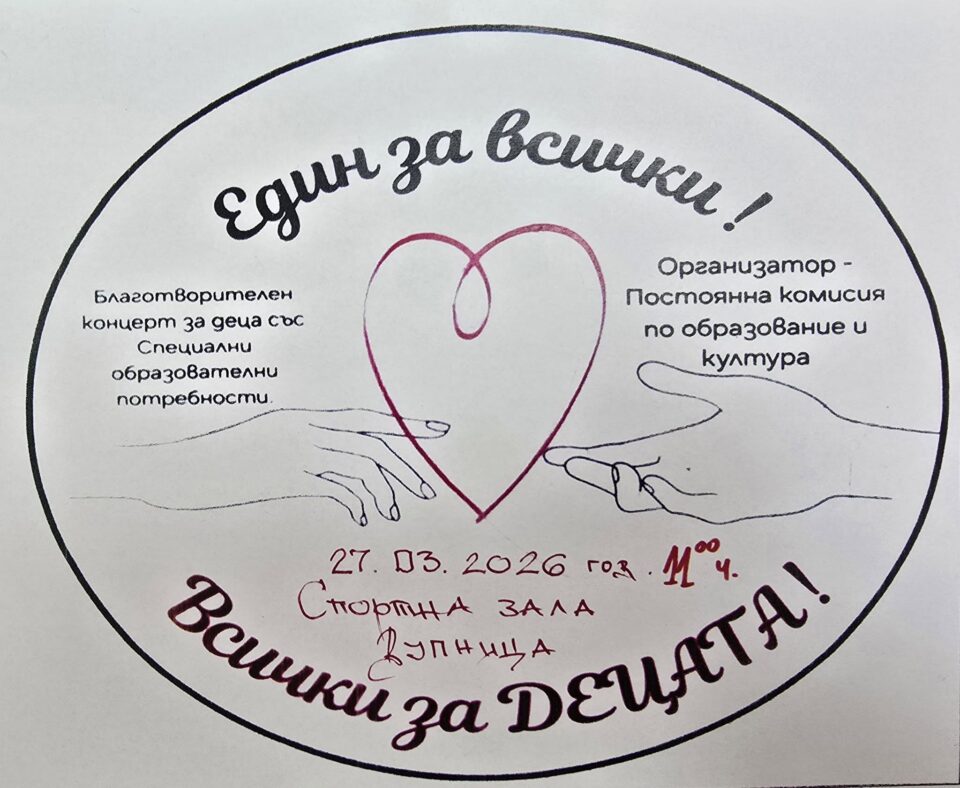 Един за всички!
Благотворителен
концерт за деца със
Специални
образователни
потребности.
Организатор -
Постоянна комисия
по образование и
култура
27. 03. 2026 год. 11⁰⁰ ч.
Спортна зала
Дупница
Всички за ДЕЦАТА!